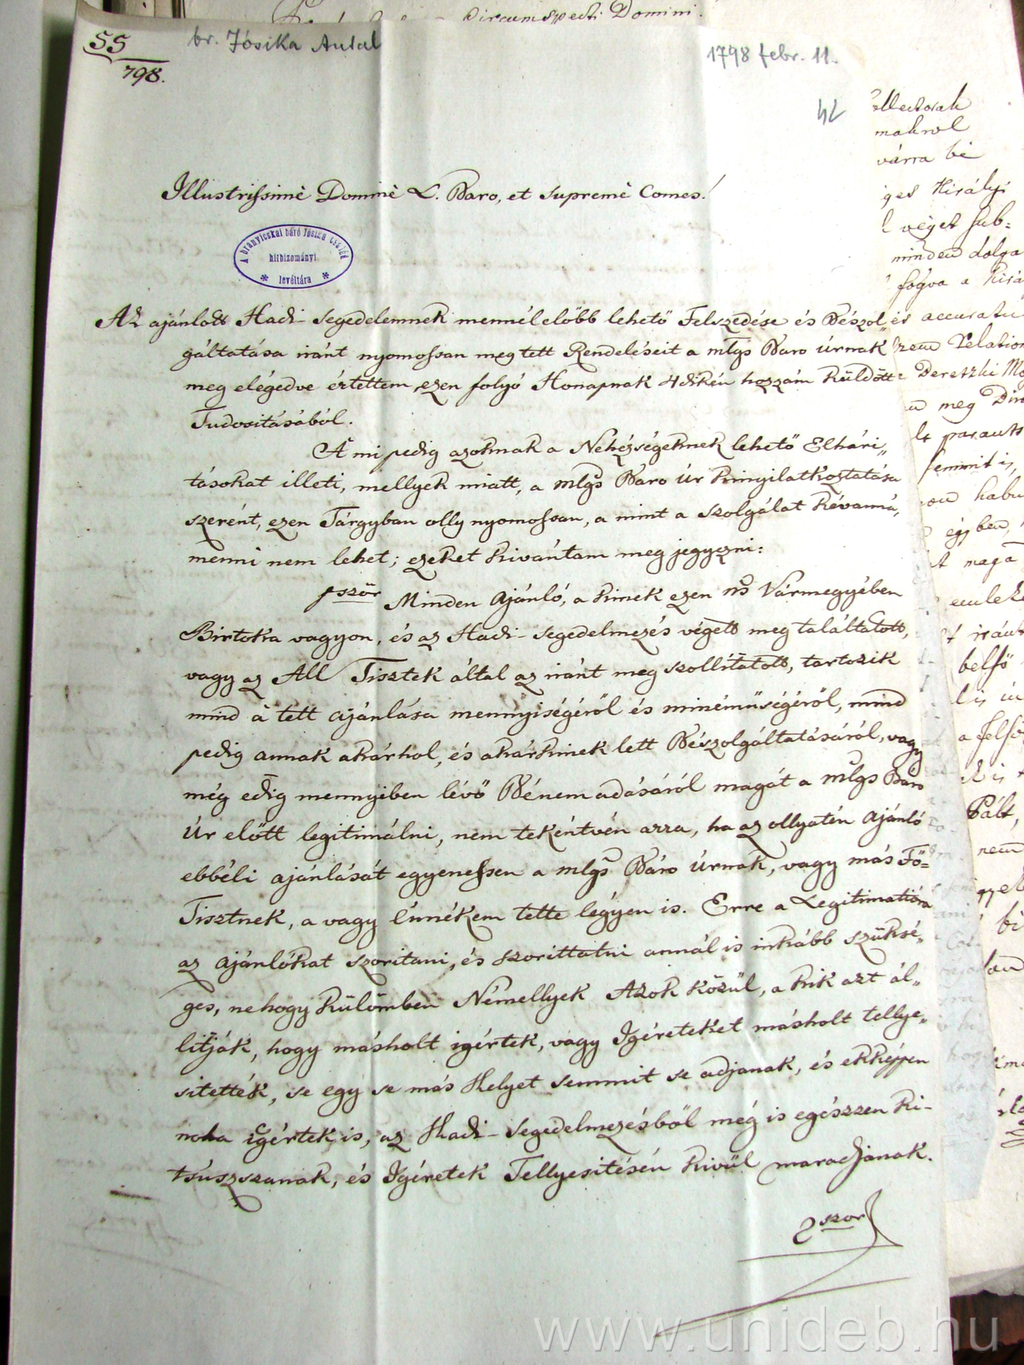 Circumspecti Domini.
55
798.
br. Jósika Antal
1798 febr. 11.
42
Illustrissimè Dominè L. Baro, et Supremè Comes!
A branyicskai báró Jósika család
hitbizományi
levéltára
Az ajánlott Hadi-Segedelemnek mennélelöbb lehetö Felszedése és Beszol„
gáltatása iránt nyomossan meg tett Rendeléseit a mlgs Baro úrnak
meg elégedve értettem ezen folyó Honapnak 4dikén hozzám küldött
Tudositásából.
A mi pedig azoknak a Nehézségeknek lehetö Elhári„
tásokat illeti, mellyek miatt, a mlgs Baro úr kinyilatkoztatása
szerént, ezen Tárgyban olly nyomossan, a mint a szolgálat kévanná,
menni nem lehet; ezeket kivántam meg jegyezni:
1ször Minden Ajánló, a kinek ezen ns Vármegyében
Birtoka vagyon, és az Hadi-Segedelmezés végett meg találtatott,
vagy az All Tisztek által az iránt meg szollittatott, tartozik
mind à tett ajánlása mennyiségéröl és minémüségéröl, mind
pedig annak akárhol, és akárkinek lett Bészolgáltatásáról, vagy
még edig mennyiben lévö Bé nem adásáról magát a mlgs Baro
Úr elött legitimálni, nem tekéntvén arra, ha az ollyatén Ajánló
ebbéli ajánlását egyenessen a mlgs Báro úrnak, vagy más Fö=
Tisztnek, a vagy énnékem tette légyen is. Erre a Legitimatióra
az Ajánlókat szoritani, és szorittatni annál is inkább szüksé„
ges, nehogy külömben Némellyek Azok közül, a kik azt ál„
litják, hogy másholt igértek, vagy Igéreteket másholt tellye„
sitették, se egy se más Helyet semmit se adjanak, és ekképpen
noha igértek is, az Hadi-Segedelmezésböl még is egészszen ki-
tsúszszanak, és Igéretek Tellyesitésén kivül maradjanak.
2szor
www.unideb.hu